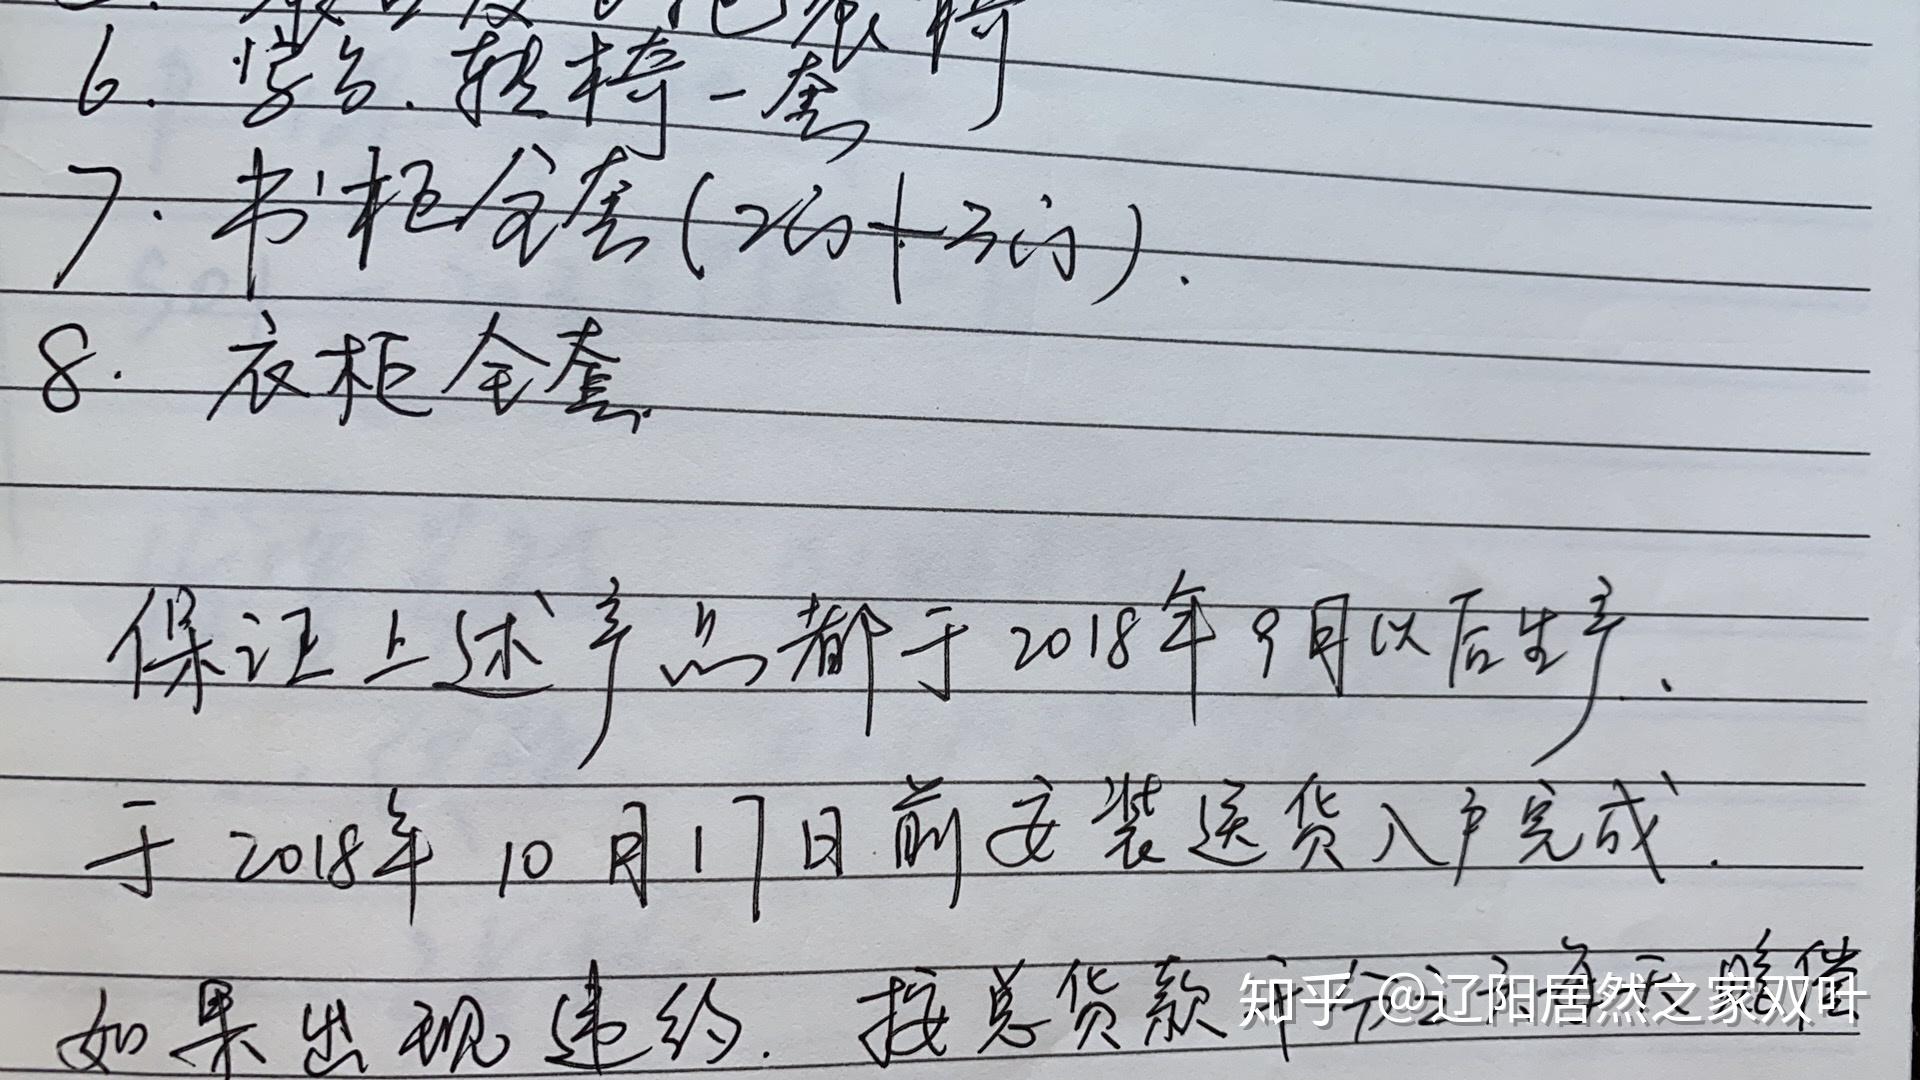 6. 学台.软椅一套
7. 书柜全套(2门+3门).
8. 衣柜全套.
保证上述产品都于2018年9月以后生产.
于2018年10月17日前安装送货入户完成.
如果出现违约.按总货款千分之 每天赔偿
知乎 @辽阳居然之家双叶